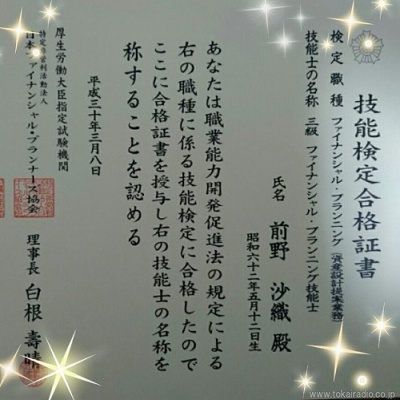 技能検定合格証書
検定職種 ファイナンシャル・プランニング(資産設計提案業務)
技能士の名称 三級 ファイナンシャル・プランニング技能士
氏名 前野 沙織 殿
昭和六十二年五月十二日生
あなたは職業能力開発促進法の規定による
右の職種に係る技能検定に合格したので
ここに合格証書を授与し右の技能士の名称を
称することを認める
平成三十年三月八日
厚生労働大臣指定試験機関
特定非営利活動法人
日本ファイナンシャル・プランナーズ協会
理事長 白根 壽晴
www.tokairadio.co.jp